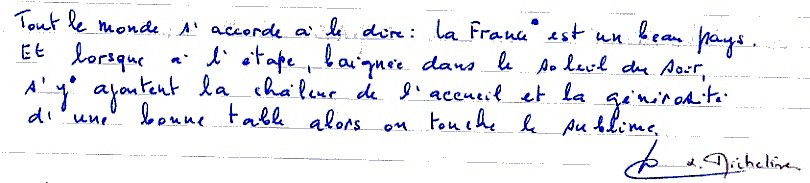 Tout le monde s'accorde à le dire : la France est un beau pays.
Et lorsque à l'étape, baignée dans le soleil du soir,
s'y ajoutent la chaleur de l'accueil et la générosité
d'une bonne table alors on touche le sublime.